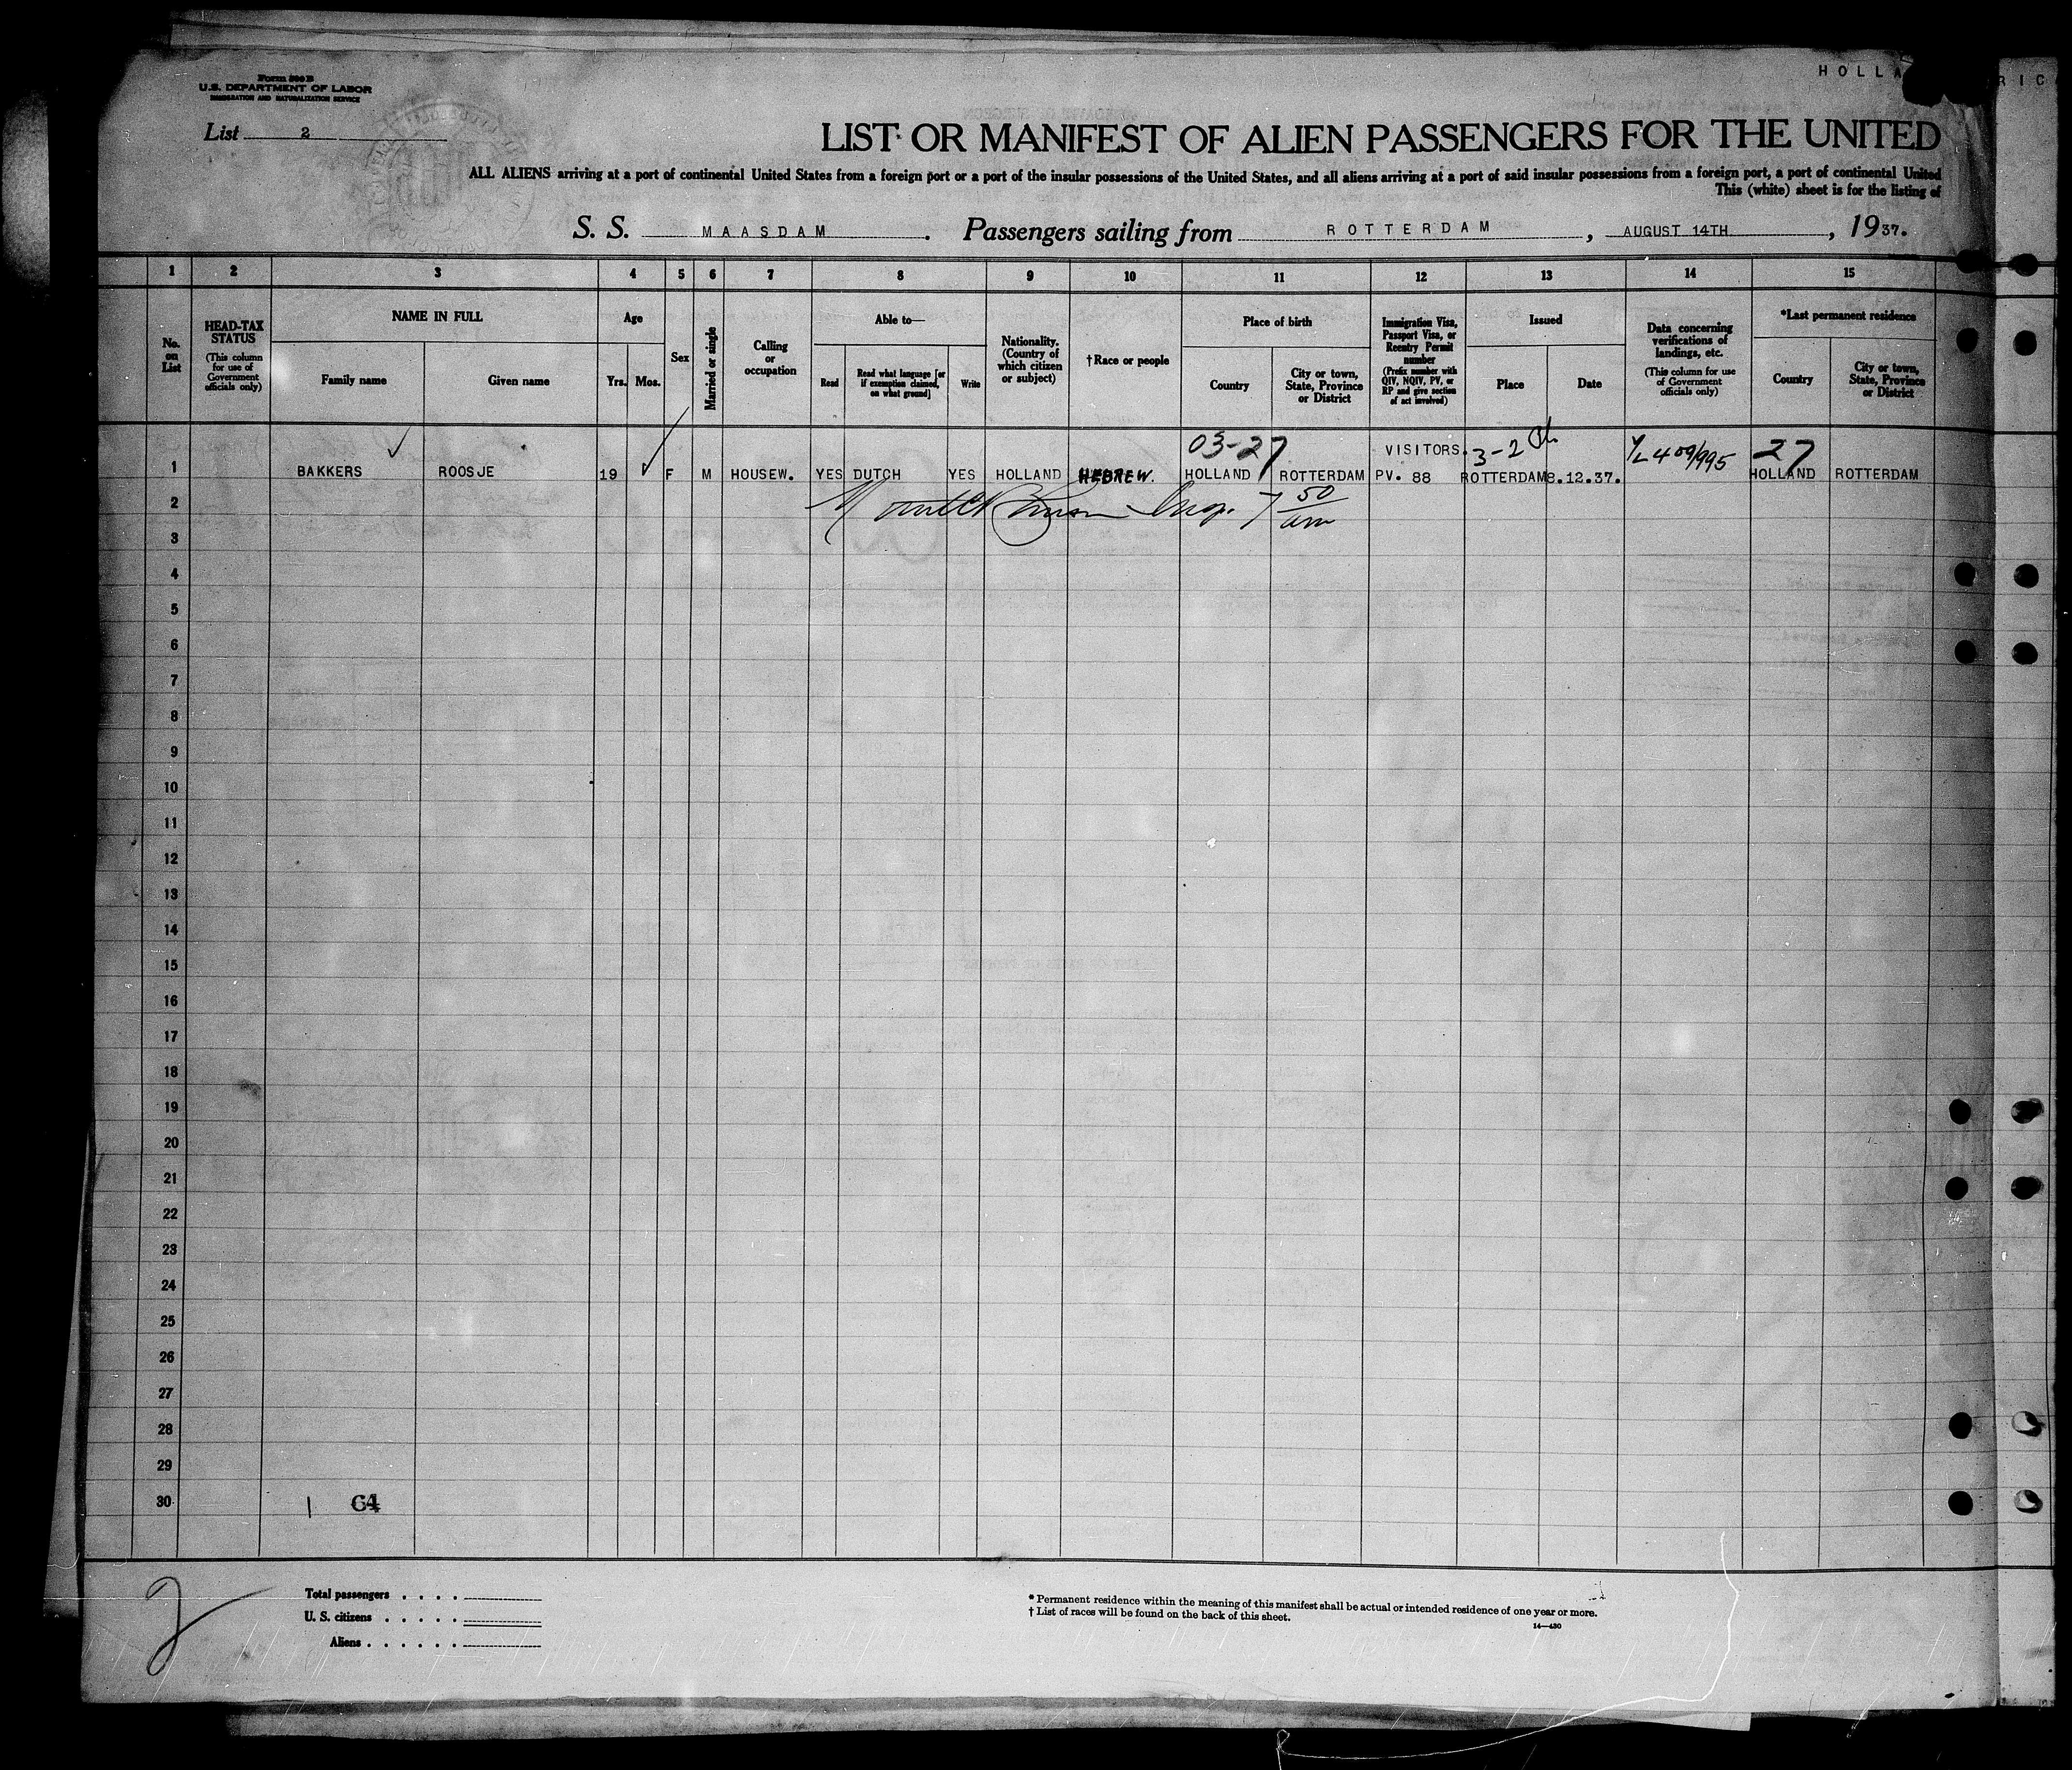 Form 500 B
U. S. DEPARTMENT OF LABOR
IMMIGRATION AND NATURALIZATION SERVICE
HOLLA RIC
List 2
LIST OR MANIFEST OF ALIEN PASSENGERS FOR THE UNITED
ALL ALIENS arriving at a port of continental United States from a foreign port or a port of the insular possessions of the United States, and all aliens arriving at a port of said insular possessions from a foreign port, a port of continental United
This (white) sheet is for the listing of
S. S. MAASDAM. Passengers sailing from ROTTERDAM, AUGUST 14TH, 1937.
1 2 3 4 5 6 7 8 9 10 11 12 13 14 15
No. on List
HEAD-TAX STATUS (This column for use of Government officials only)
NAME IN FULL
Family name Given name
Age
Yrs. Mos.
Sex
Married or single
Calling or occupation
Able to—
Read Read what language [or if exemption claimed, on what ground] Write
Nationality. (Country of which citizen or subject)
† Race or people
Place of birth
Country City or town, State, Province or District
Immigration Visa, Passport Visa, or Reentry Permit number (Prefix number with QIV, NQIV, PV, or RP and give section of act involved)
Issued
Place Date
Data concerning verifications of landings, etc. (This column for use of Government officials only)
*Last permanent residence
Country City or town, State, Province or District
03-27 VISITORS. 3-2 27
1 BAKKERS ROOSJE 19 F M HOUSEW. YES DUTCH YES HOLLAND HEBREW. HOLLAND ROTTERDAM PV. 88 ROTTERDAM 8.12.37. HOLLAND ROTTERDAM
2 Insp. 7 50 am
3
4
5
6
7
8
9
10
11
12
13
14
15
16
17
18
19
20
21
22
23
24
25
26
27
28
29
30 1 64
2
Total passengers . . . .
U. S. citizens . . . . .
Aliens . . . . . .
* Permanent residence within the meaning of this manifest shall be actual or intended residence of one year or more.
† List of races will be found on the back of this sheet.
14—430